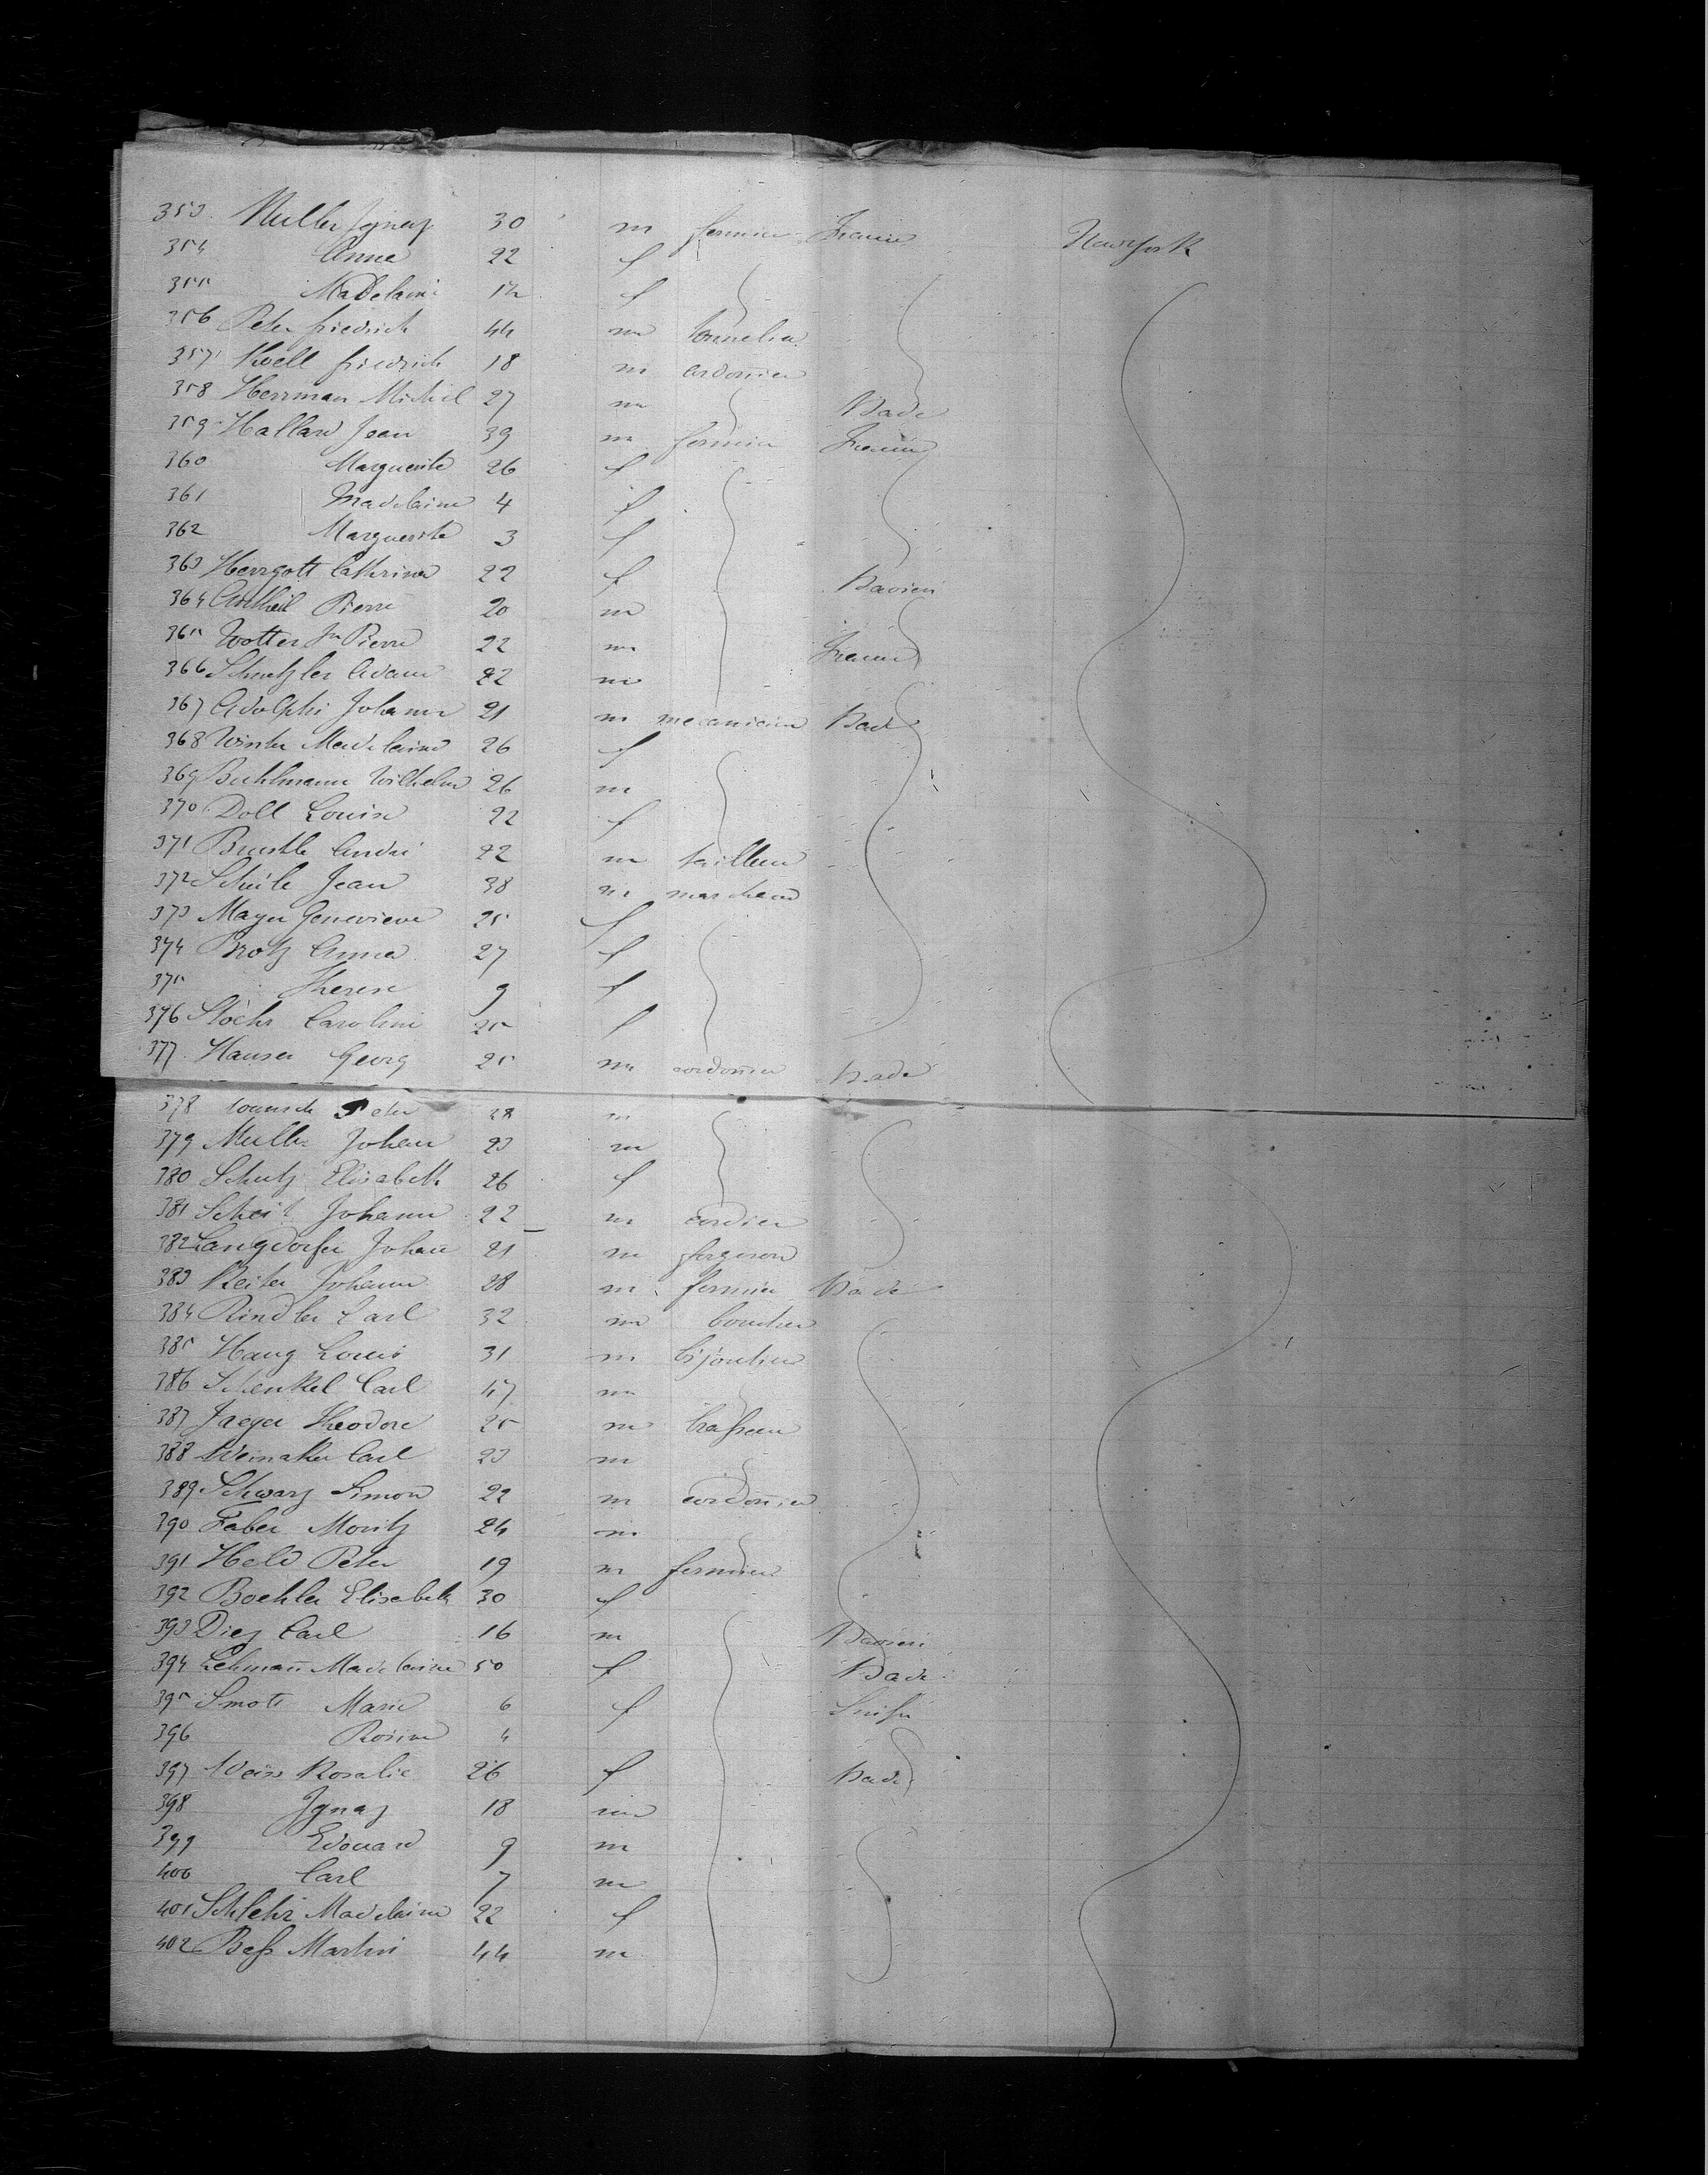 353. Muller Ignaz 30 m fermier France NewYork
354 Anna 22 f
355 Madelaine 12 f
356 Peter friedrich 44 m tonnelier
357 Knell friedrich 18 m cordonier
358 Herrman Michel 27 m Bade
359 Hallard Jean 39 m fermier France
360 Marguerite 26 f
361 Madelaine 4 f
362 Marguerite 3 f
363 Herrgott Cathrina 22 f Baviere
364 Pierre 20 m
365 Wotter Jn Pierre 22 m France
366 Schutzler Adam 22 m
367 Adolphi Johann 21 m mecanicien Bade
368 Winter Madelaine 26 f
369 Buhlmann Wilhelm 26 m
370 Doll Louise 22 f
371 Bruestle André 22 m tailleur
372 Scheile Jean 38 m marchand
373 Mayer Genevieve 25 f
374 Brotz Anna 27 f
375 Therese 9 f
376 Stoehr Caroline 25 f
377. Hauser Georg 25 m cordonier Bade
378 Wunsch Peter 28 m
379 Muller Johann 23 m
380 Schutz Elisabeth 26 f
381 Scheit Johann 22 m cordier
382 Langdorfer Johann 21 m forgeron
383 Reiter Johann 28 m fermier Bade
384 Rindler Carl 32 m boucher
385 Haug Louis 31 m bijoutier
386 Schenkel Carl 47 m
387 Jaeger Theodore 25 m brasseur
388 Carl 23 m
389 Schwarz Simon 22 m cordonier
390 Faber Moritz 24 m
391 Held Peter 19 m fermier
392 Boehler Elisabeth 30 f
393 Diez Carl 16 m Baviere
394 Lehmann Madelaine 50 f Bade
395 Smots Marie 6 f Suisse
396 Rosine 4
397 Weiss Rosalie 26 f Bade
398 Ignaz 18 m
399 Edouard 9 m
400 Carl 7 m
401 Schlehr Madelaine 22 f
402 Bess Martin 44 m